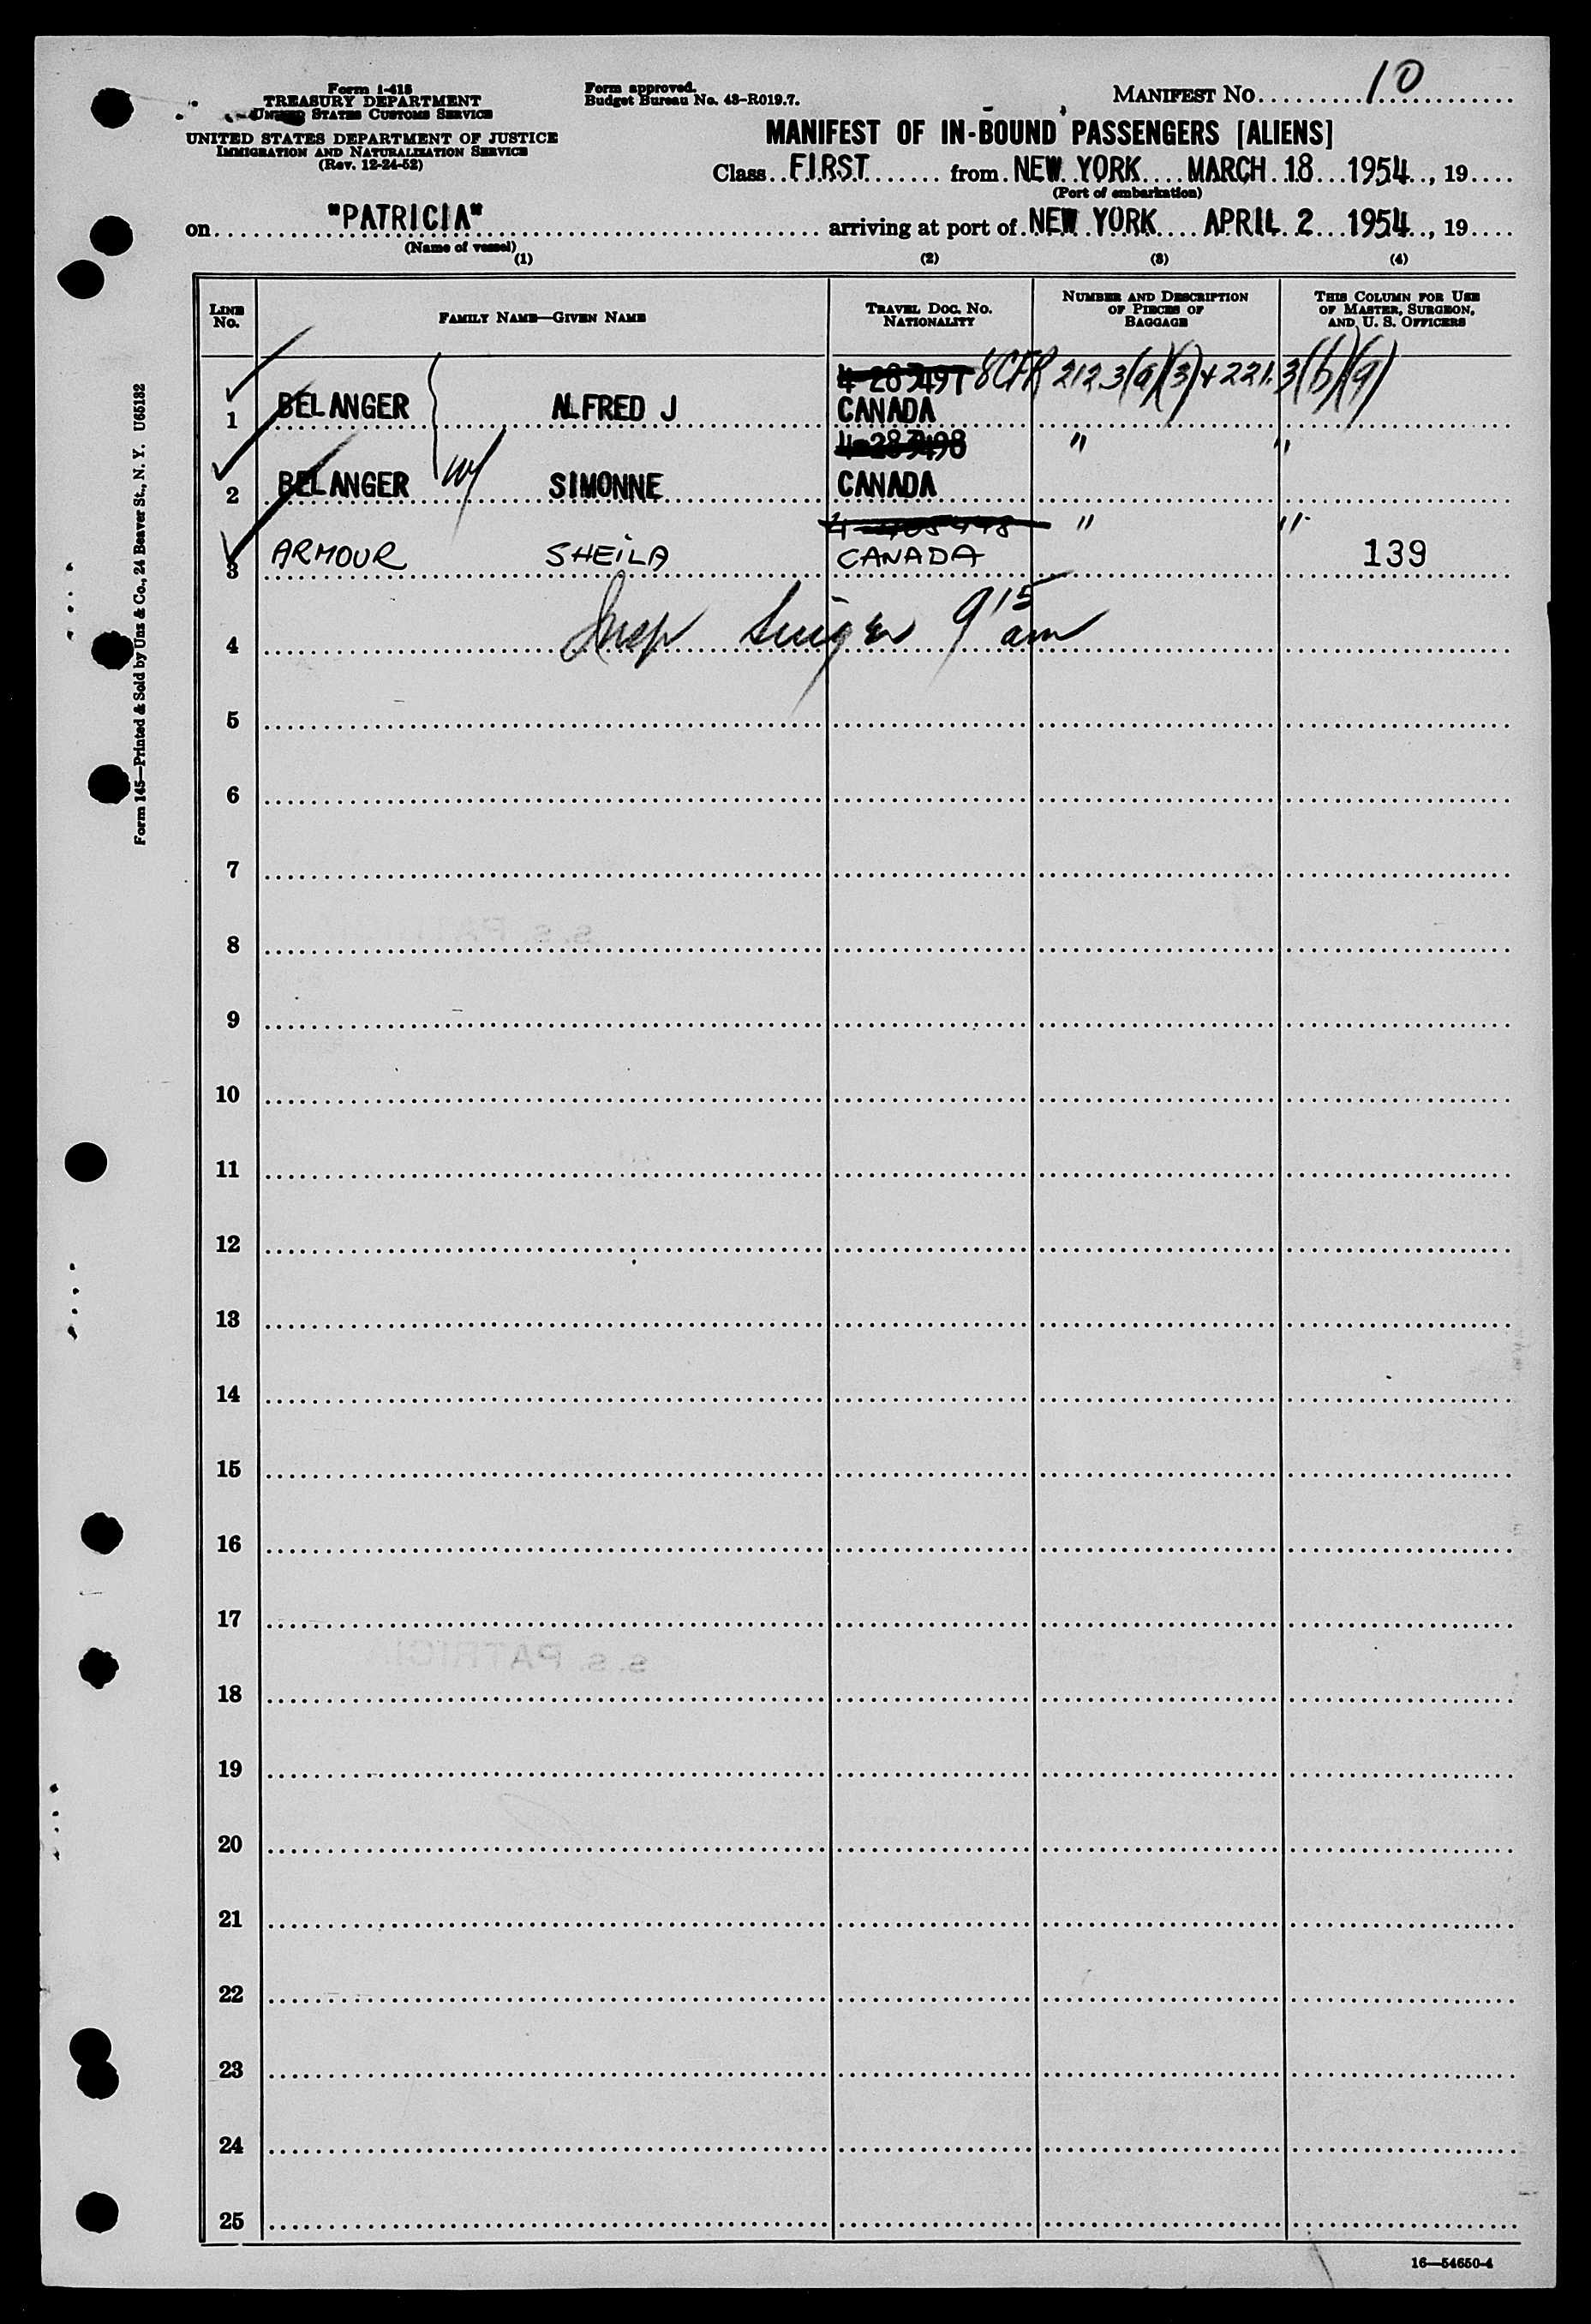 Form I-418
TREASURY DEPARTMENT
UNITED STATES CUSTOMS SERVICE
UNITED STATES DEPARTMENT OF JUSTICE
IMMIGRATION AND NATURALIZATION SERVICE
(Rev. 12-24-52)
Form approved.
Budget Bureau No. 43-R019.7.
MANIFEST NO. 10
MANIFEST OF IN-BOUND PASSENGERS [ALIENS]
Class FIRST from NEW YORK MARCH 18 1954, 19
(Port of embarkation)
on "PATRICIA" arriving at port of NEW YORK APRIL 2 1954, 19
(Name of vessel)
(1) (2) (3) (4)
LINE NO.
FAMILY NAME—GIVEN NAME
TRAVEL DOC. NO.
NATIONALITY
NUMBER AND DESCRIPTION
OF PIECES OF
BAGGAGE
THIS COLUMN FOR USE
OF MASTER, SURGEON,
AND U. S. OFFICERS
4-283497 8CFR 212.3(a)(3) + 221.3(b)(9)
1 BELANGER ALFRED J CANADA
4-283498 " "
2 BELANGER W/ SIMONNE CANADA
" "
3 ARMOUR SHEILA CANADA 139
4 Insp Singer 9 15 am
5
6
7
8
9
10
11
12
13
14
15
16
17
18
19
20
21
22
23
24
25
16—54650-4
Form 145—Printed & Sold by Unz & Co., 24 Beaver St., N. Y. U65132